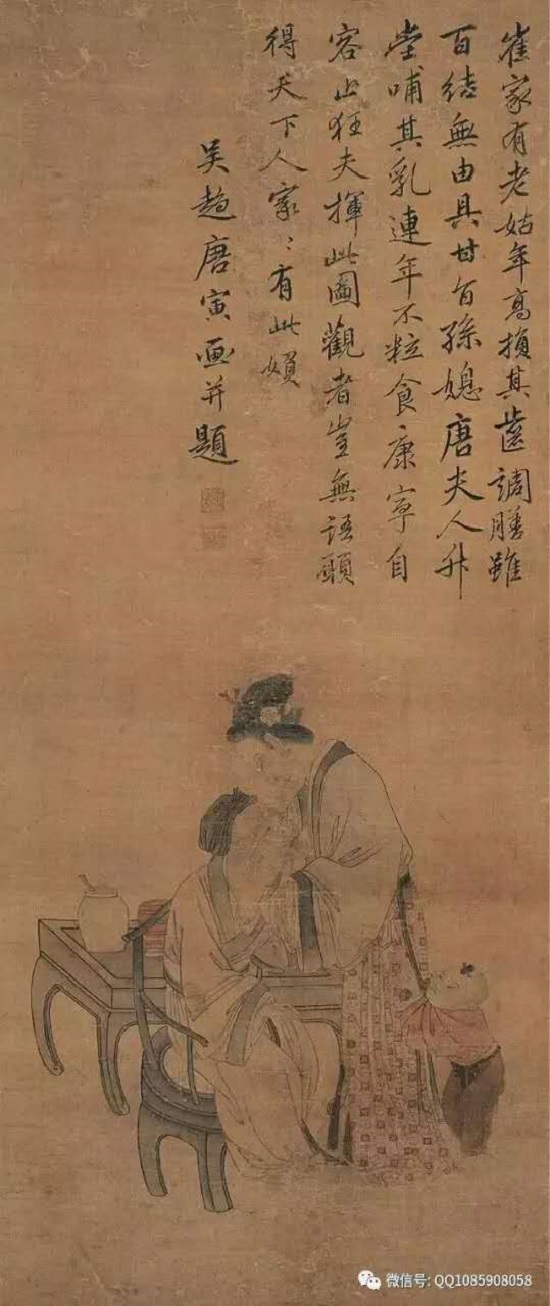 崔家有老姑年高損其齒調膳雖
百結無由具甘旨孫媳唐夫人升
堂哺其乳連年不粒食康寧自
容止狂夫揮此圖觀者豈無語願
得天下人家〻有此媍
吳趨唐寅画并題
微信号: QQ1085908058